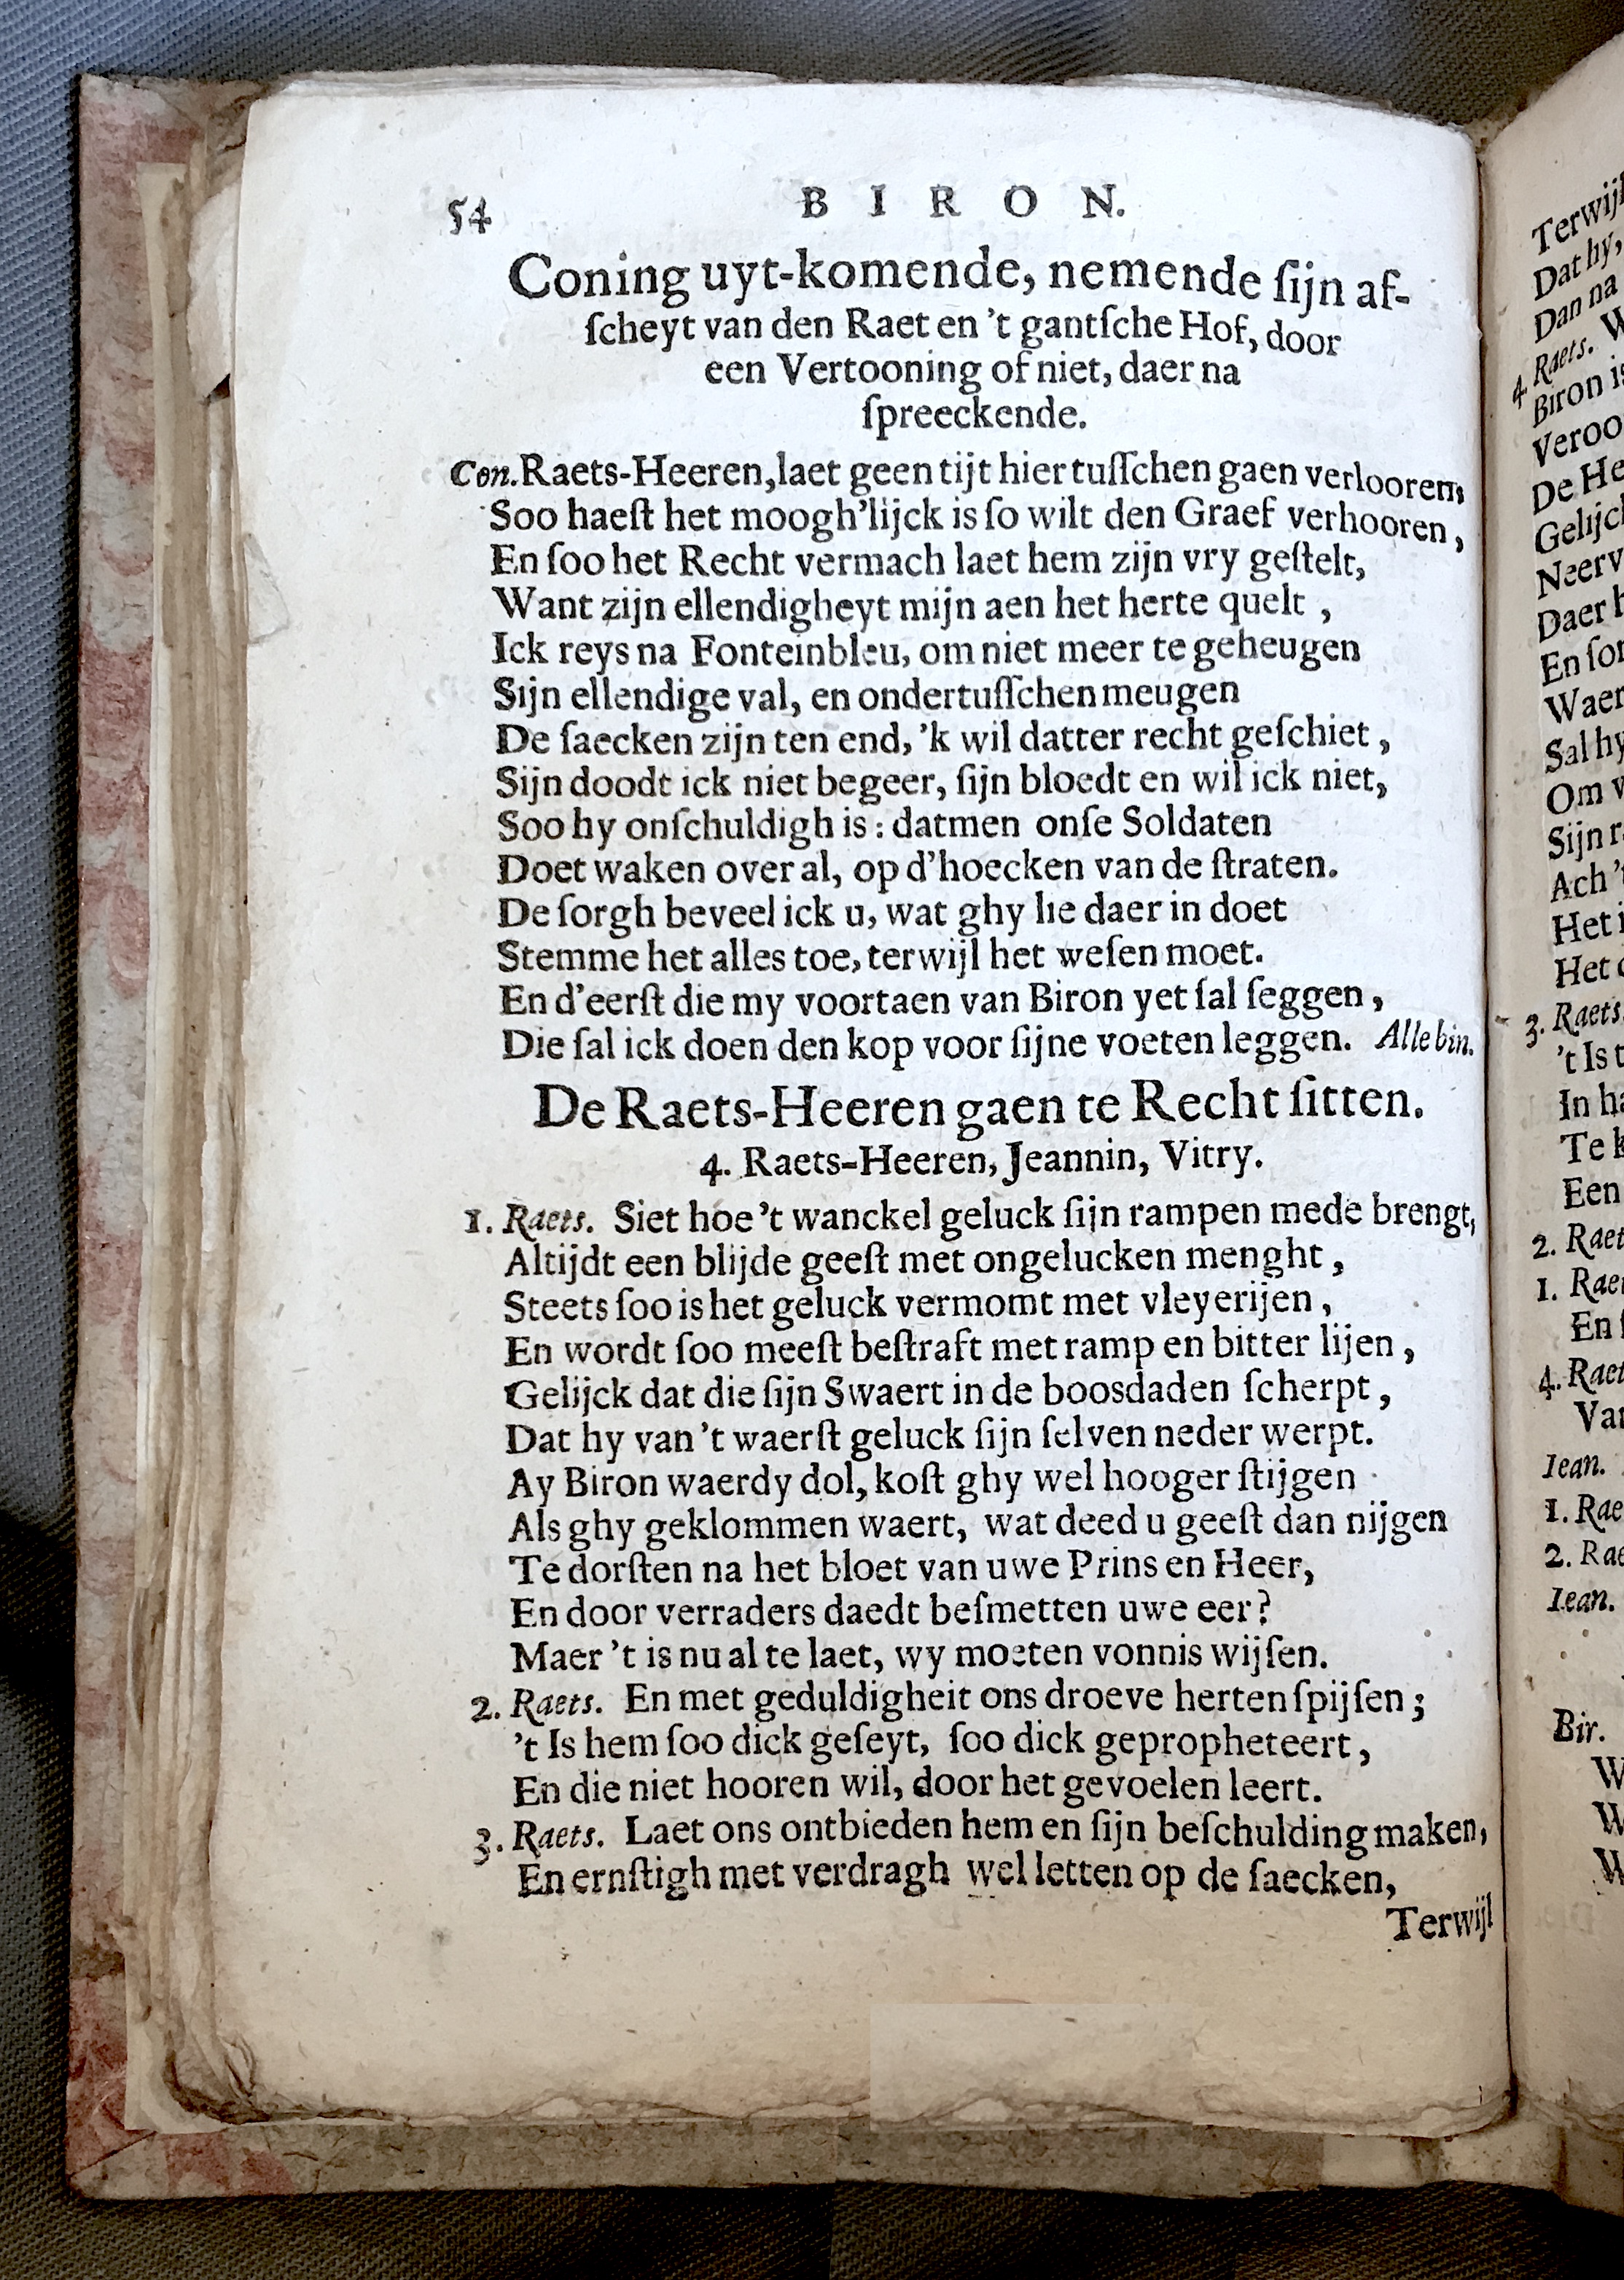 54 BIRON.
Coning uyt-komende, nemende ſijn af-
ſcheyt van den Raet en 't gantſche Hof, door
een Vertooning of niet, daer na
ſpreeckende.
Con. Raets-Heeren, laet geen tijt hier tuſſchen gaen verlooren,
Soo haeſt het moogh'lijck is ſo wilt den Graef verhooren,
En ſoo het Recht vermach laet hem zijn vry geſtelt,
Want zijn ellendigheyt mijn aen het herte quelt,
Ick reys na Fonteinbleu, om niet meer te geheugen
Sijn ellendige val, en ondertuſſchen meugen
De ſaecken zijn ten end, 'k wil datter recht geſchiet,
Sijn doodt ick niet begeer, ſijn bloedt en wil ick niet,
Soo hy onſchuldigh is: datmen onſe Soldaten
Doet waken over al, op d'hoecken van de ſtraten.
De ſorgh beveel ick u, wat ghy lie daer in doet
Stemme het alles toe, terwijl het weſen moet.
En d'eerſt die my voortaen van Biron yet ſal ſeggen,
Die ſal ick doen den kop voor ſijne voeten leggen. Alle bin.
De Raets-Heeren gaen te Recht ſitten.
4. Raets-Heeren, Jeannin, Vitry.
1. Raets. Siet hoe 't wanckel geluck ſijn rampen mede brengt,
Altijdt een blijde geeſt met ongelucken menght,
Steets ſoo is het geluck vermomt met vleyerijen,
En wordt ſoo meeſt beſtraft met ramp en bitter lijen,
Gelijck dat die ſijn Swaert in de boosdaden ſcherpt,
Dat hy van 't waerſt geluck ſijn ſelven neder werpt.
Ay Biron waerdy dol, koſt ghy wel hooger ſtijgen
Als ghy geklommen waert, wat deed u geeſt dan nijgen
Te dorſten na het bloet van uwe Prins en Heer,
En door verraders daedt beſmetten uwe eer?
Maer 't is nu al te laet, wy moeten vonnis wijſen.
2. Raets. En met geduldigheit ons droeve herten ſpijſen;
't Is hem ſoo dick geſeyt, ſoo dick gepropheteert,
En die niet hooren wil, door het gevoelen leert.
3. Raets. Laet ons ontbieden hem en ſijn beſchulding maken,
En ernſtigh met verdragh wel letten op de ſaecken,
Terwijl
Terwijl
Dat hy,
Dan na
4. Raets.
Biron
De
Daer
Waer
Sal hy
Om
Sijn
Ach
Het
Het
3. Raets.
't Is
In
Te
Een
2. Raet
1.
En
4. Raet
Iean.
1. Rae
2. Rae
Iean.
Bir.